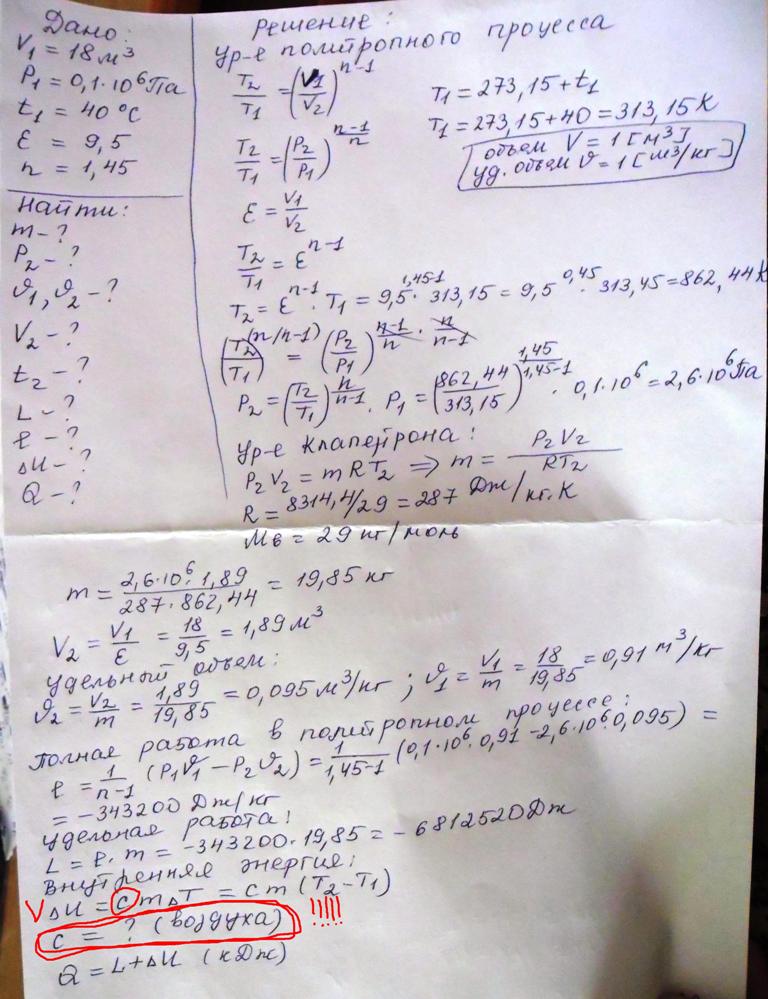 Дано:
V₁ = 18 м³
P₁ = 0,1·10⁶ Па
t₁ = 40 °C
ε = 9,5
n = 1,45
Найти:
m - ?
P₂ - ?
ϑ₁, ϑ₂ - ?
V₂ - ?
t₂ - ?
L - ?
ℓ - ?
ΔU - ?
Q - ?
Решение:
Ур-е политропного процесса
T₂/T₁ = (V₁/V₂)^(n-1)
T₁ = 273,15 + t₁
T₁ = 273,15 + 40 = 313,15 K
объем V = 1 [м³]
уд. объем ϑ = 1 [м³/кг]
T₂/T₁ = (P₂/P₁)^((n-1)/n)
ε = V₁/V₂
T₂/T₁ = ε^(n-1)
T₂ = ε^(n-1) · T₁ = 9,5^(1,45-1) · 313,15 = 9,5^(0,45) · 313,45 = 862,44 K
(T₂/T₁)^(n/n-1) = (P₂/P₁)^((n-1)/n · n/(n-1))
P₂ = (T₂/T₁)^(n/(n-1)) · P₁ = (862,44/313,15)^(1,45/(1,45-1)) · 0,1·10⁶ = 2,6·10⁶ Па
Ур-е Клапейрона:
P₂V₂ = mRT₂ ⇒ m = P₂V₂/RT₂
R = 8314,4/29 = 287 Дж/кг.К
Mв = 29 кг/моль
m = 2,6·10⁶·1,89/287·862,44 = 19,85 кг
V₂ = V₁/ε = 18/9,5 = 1,89 м³
удельный объем:
ϑ₂ = V₂/m = 1,89/19,85 = 0,095 м³/кг ; ϑ₁ = V₁/m = 18/19,85 = 0,91 м³/кг
Полная работа в политропном процессе:
ℓ = 1/(n-1) (P₁ϑ₁ - P₂ϑ₂) = 1/(1,45-1) (0,1·10⁶·0,91 - 2,6·10⁶·0,095) =
= -343200 Дж/кг
удельная работа:
L = ℓ·m = -343200·19,85 = -6812520 Дж
Внутренняя энергия:
V ΔU = cmΔT = cm (T₂-T₁)
c = ? (воздуха) !!!!!
Q = L+ΔU (кДж)